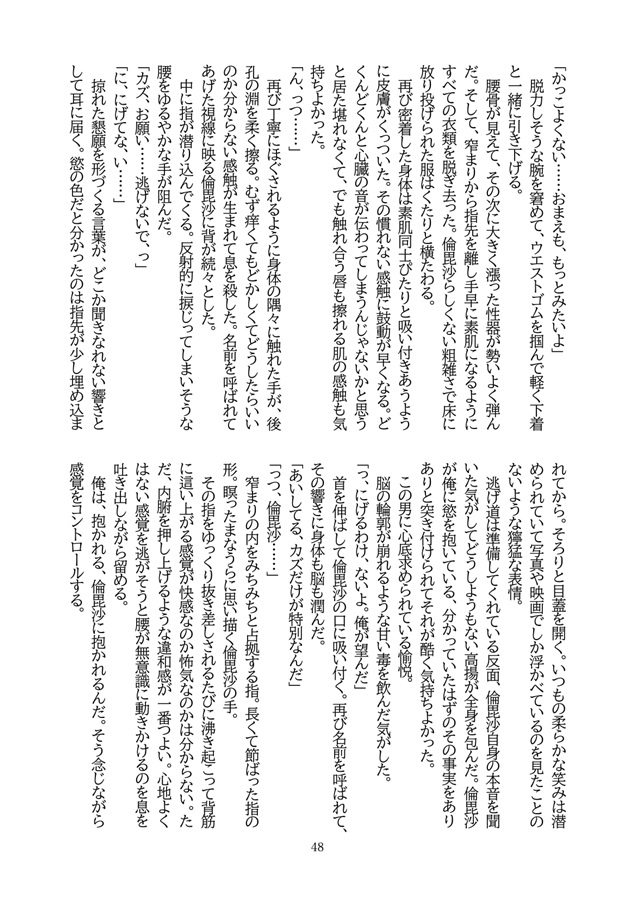 「かっこよくない……おまえも、もっとみたいよ」
　脱力しそうな腕を窘めて、ウエストゴムを掴んで軽く下着
と一緒に引き下げる。
　腰骨が見えて、その次に大きく漲った性器が勢いよく弾ん
だ。そして、窄まりから指先を離し手早に素肌になるように
すべての衣類を脱ぎ去った。倫毘沙らしくない粗雑さで床に
放り投げられた服はくたりと横たわる。
　再び密着した身体は素肌同士ぴたりと吸い付きあうよう
に皮膚がくっついた。その慣れない感触に鼓動が早くなる。ど
くんどくんと心臓の音が伝わってしまうんじゃないかと思う
と居た堪れなくて、でも触れ合う唇も擦れる肌の感触も気
持ちよかった。
「ん、っつ……」
　再び丁寧にほぐされるように身体の隅々に触れた手が、後
孔の淵を柔く擦る。むず痒くてもどかしくてどうしたらいい
のか分からない感触が生まれて息を殺した。名前を呼ばれて
あげた視線に映る倫毘沙に背が続々とした。
　中に指が潜り込んでくる。反射的に捩じってしまいそうな
腰をゆるやかな手が阻んだ。
「カズ、お願い……逃げないで、っ」
「に、にげてな、い……」
　掠れた懇願を形づくる言葉が、どこか聞きなれない響きと
して耳に届く。慾の色だと分かったのは指先が少し埋め込ま
れてから。そろりと目蓋を開く。いつもの柔らかな笑みは潜
められていて写真や映画でしか浮かべているのを見たことの
ないような獰猛な表情。
　逃げ道は準備してくれている反面、倫毘沙自身の本音を聞
いた気がしてどうしようもない高揚が全身を包んだ。倫毘沙
が俺に慾を抱いている、分かっていたはずのその事実をあり
ありと突き付けられてそれが酷く気持ちよかった。
　この男に心底求められている愉悦。
　脳の輪郭が崩れるような甘い毒を飲んだ気がした。
「っ、にげるわけ、ないよ。俺が望んだ」
　首を伸ばして倫毘沙の口に吸い付く。再び名前を呼ばれて、
その響きに身体も脳も潤んだ。
「あいしてる、カズだけが特別なんだ」
「っつ、倫毘沙……」
　窄まりの内をみちみちと占拠する指。長くて節ばった指の
形。瞑ったまなうらに思い描く倫毘沙の手。
　その指をゆっくり抜き差しされるたびに沸き起こって背筋
に這い上がる感覚が快感なのか怖気なのかは分からない。た
だ、内腑を押し上げるような違和感が一番つよい。心地よく
はない感覚を逃がそうと腰が無意識に動きかけるのを息を
吐き出しながら留める。
　俺は、抱かれる、倫毘沙に抱かれるんだ。そう念じながら
感覚をコントロールする。
48